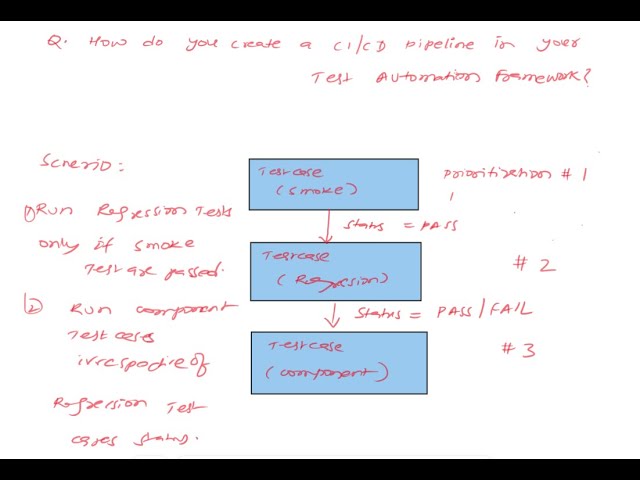 Q. How do you create a CI/CD pipeline in your
Test Automation Framework?
Scnerio:
1) Run Regression Tests
only if smoke
Test are passed.
2) Run component
Test cases
irrespective of
Regression Test
cases status.
Testcase
(smoke)
Prioritization # 1
Status = PASS
Testcase
(Regression)
# 2
Status = PASS/FAIL
Testcase
(component)
# 3